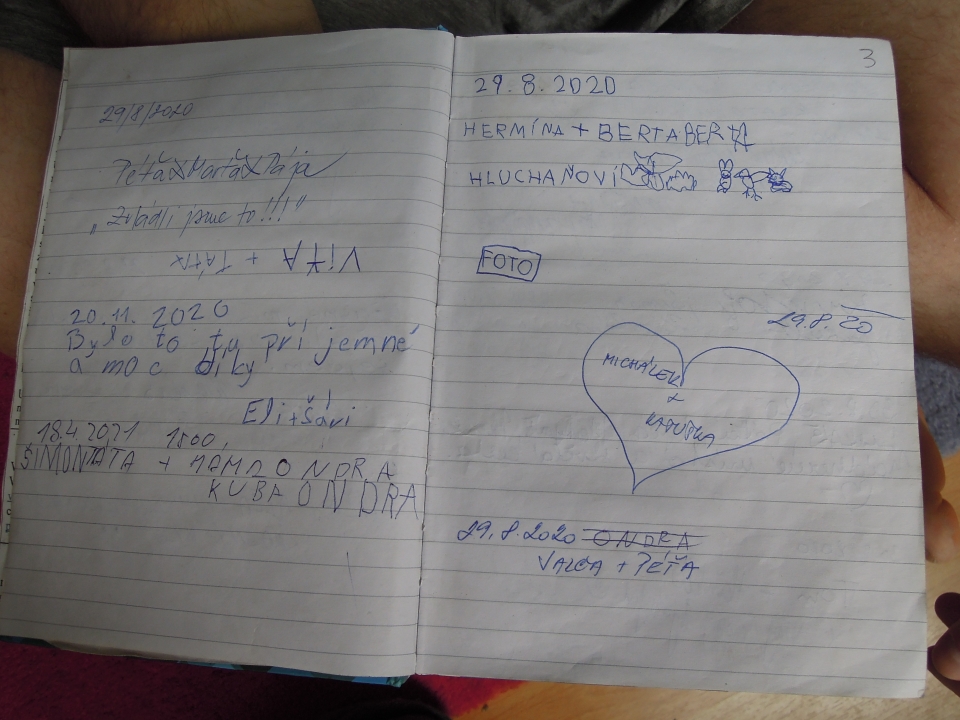 29/8/2020
Péťa X Marťa X Pája
„Zvládli jsme to!!!"
VíťA + TáTA
20.11. 2020
Bylo to tu pří jemné
a moc díky
Eli + Šári
18.4.2021 1500
ŠIMON TATA + MAMA ONDRA
KUBA ONDRA
3
29.8.2020
HERMÍNA + BERTA BERTA
HLUCHAŇOVI
FOTO
29.8.20
MICHÁLEK
&
KATUŠKA
29.8.2020 ONDRA
+ PÉŤA